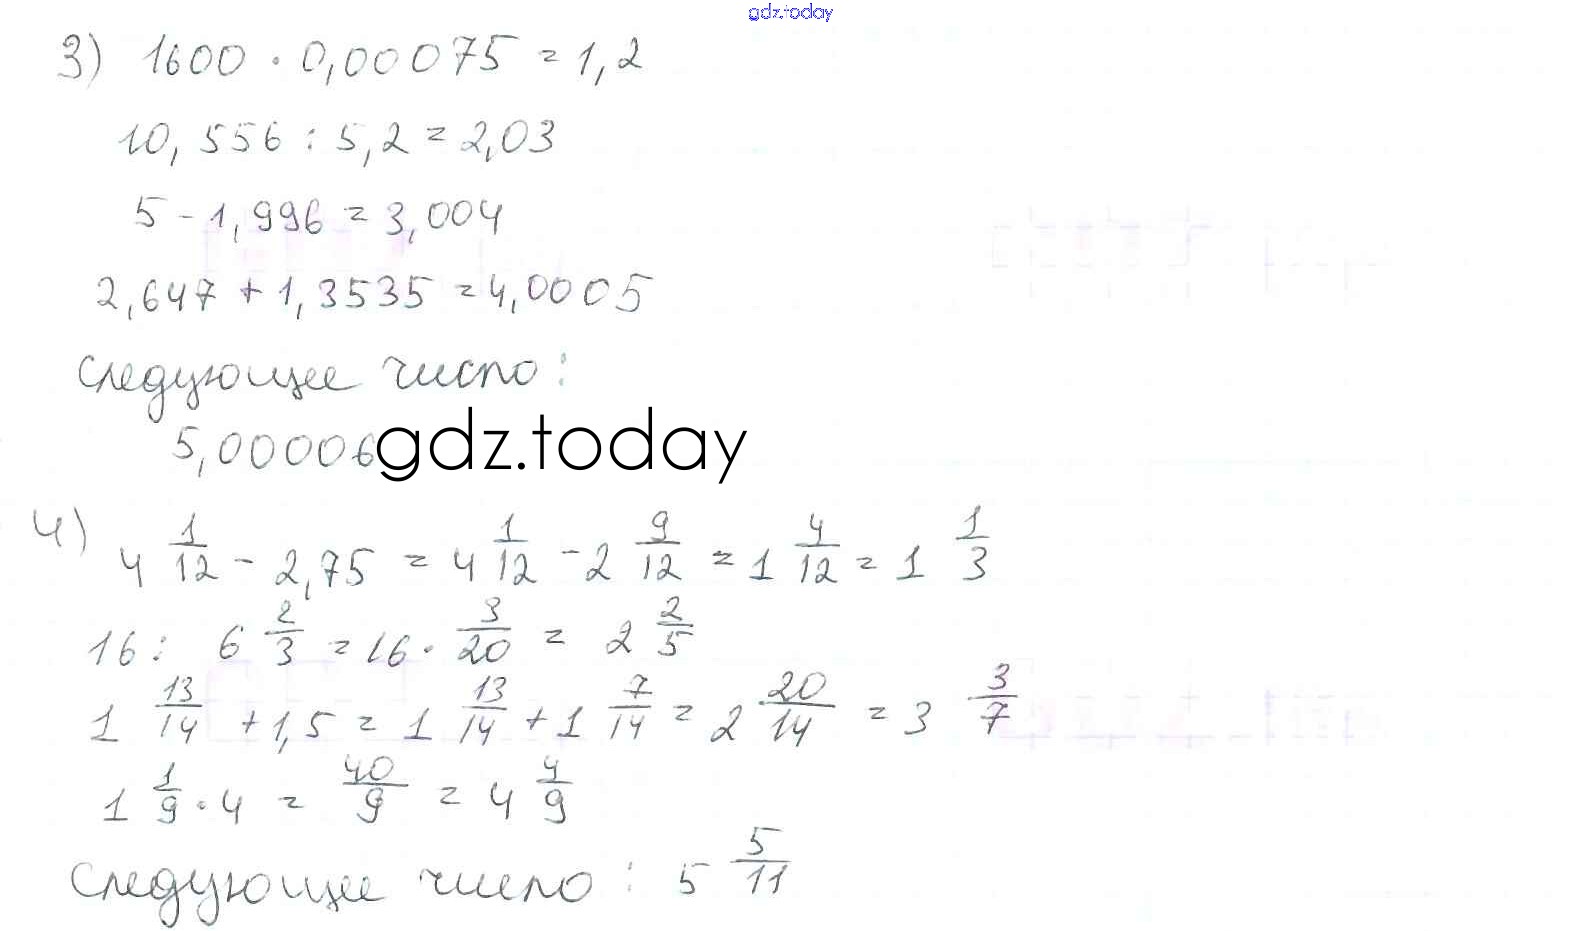 gdz.today
3) 1600 · 0,00075 = 1,2
10,556 : 5,2 = 2,03
5 - 1,996 = 3,004
2,647 + 1,3535 = 4,0005
Следующее число:
5,00006
gdz.today
4) 4 1/12 - 2,75 = 4 1/12 - 2 9/12 = 1 4/12 = 1 1/3
16 : 6 2/3 = 16 · 3/20 = 2 2/5
1 13/14 + 1,5 = 1 13/14 + 1 7/14 = 2 20/14 = 3 3/7
1 1/9 · 4 = 40/9 = 4 4/9
Следующее число: 5 5/11